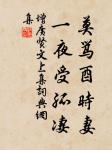 莫罵酉時妻
一夜受孤淒
增廣賢文上集詞典網
集